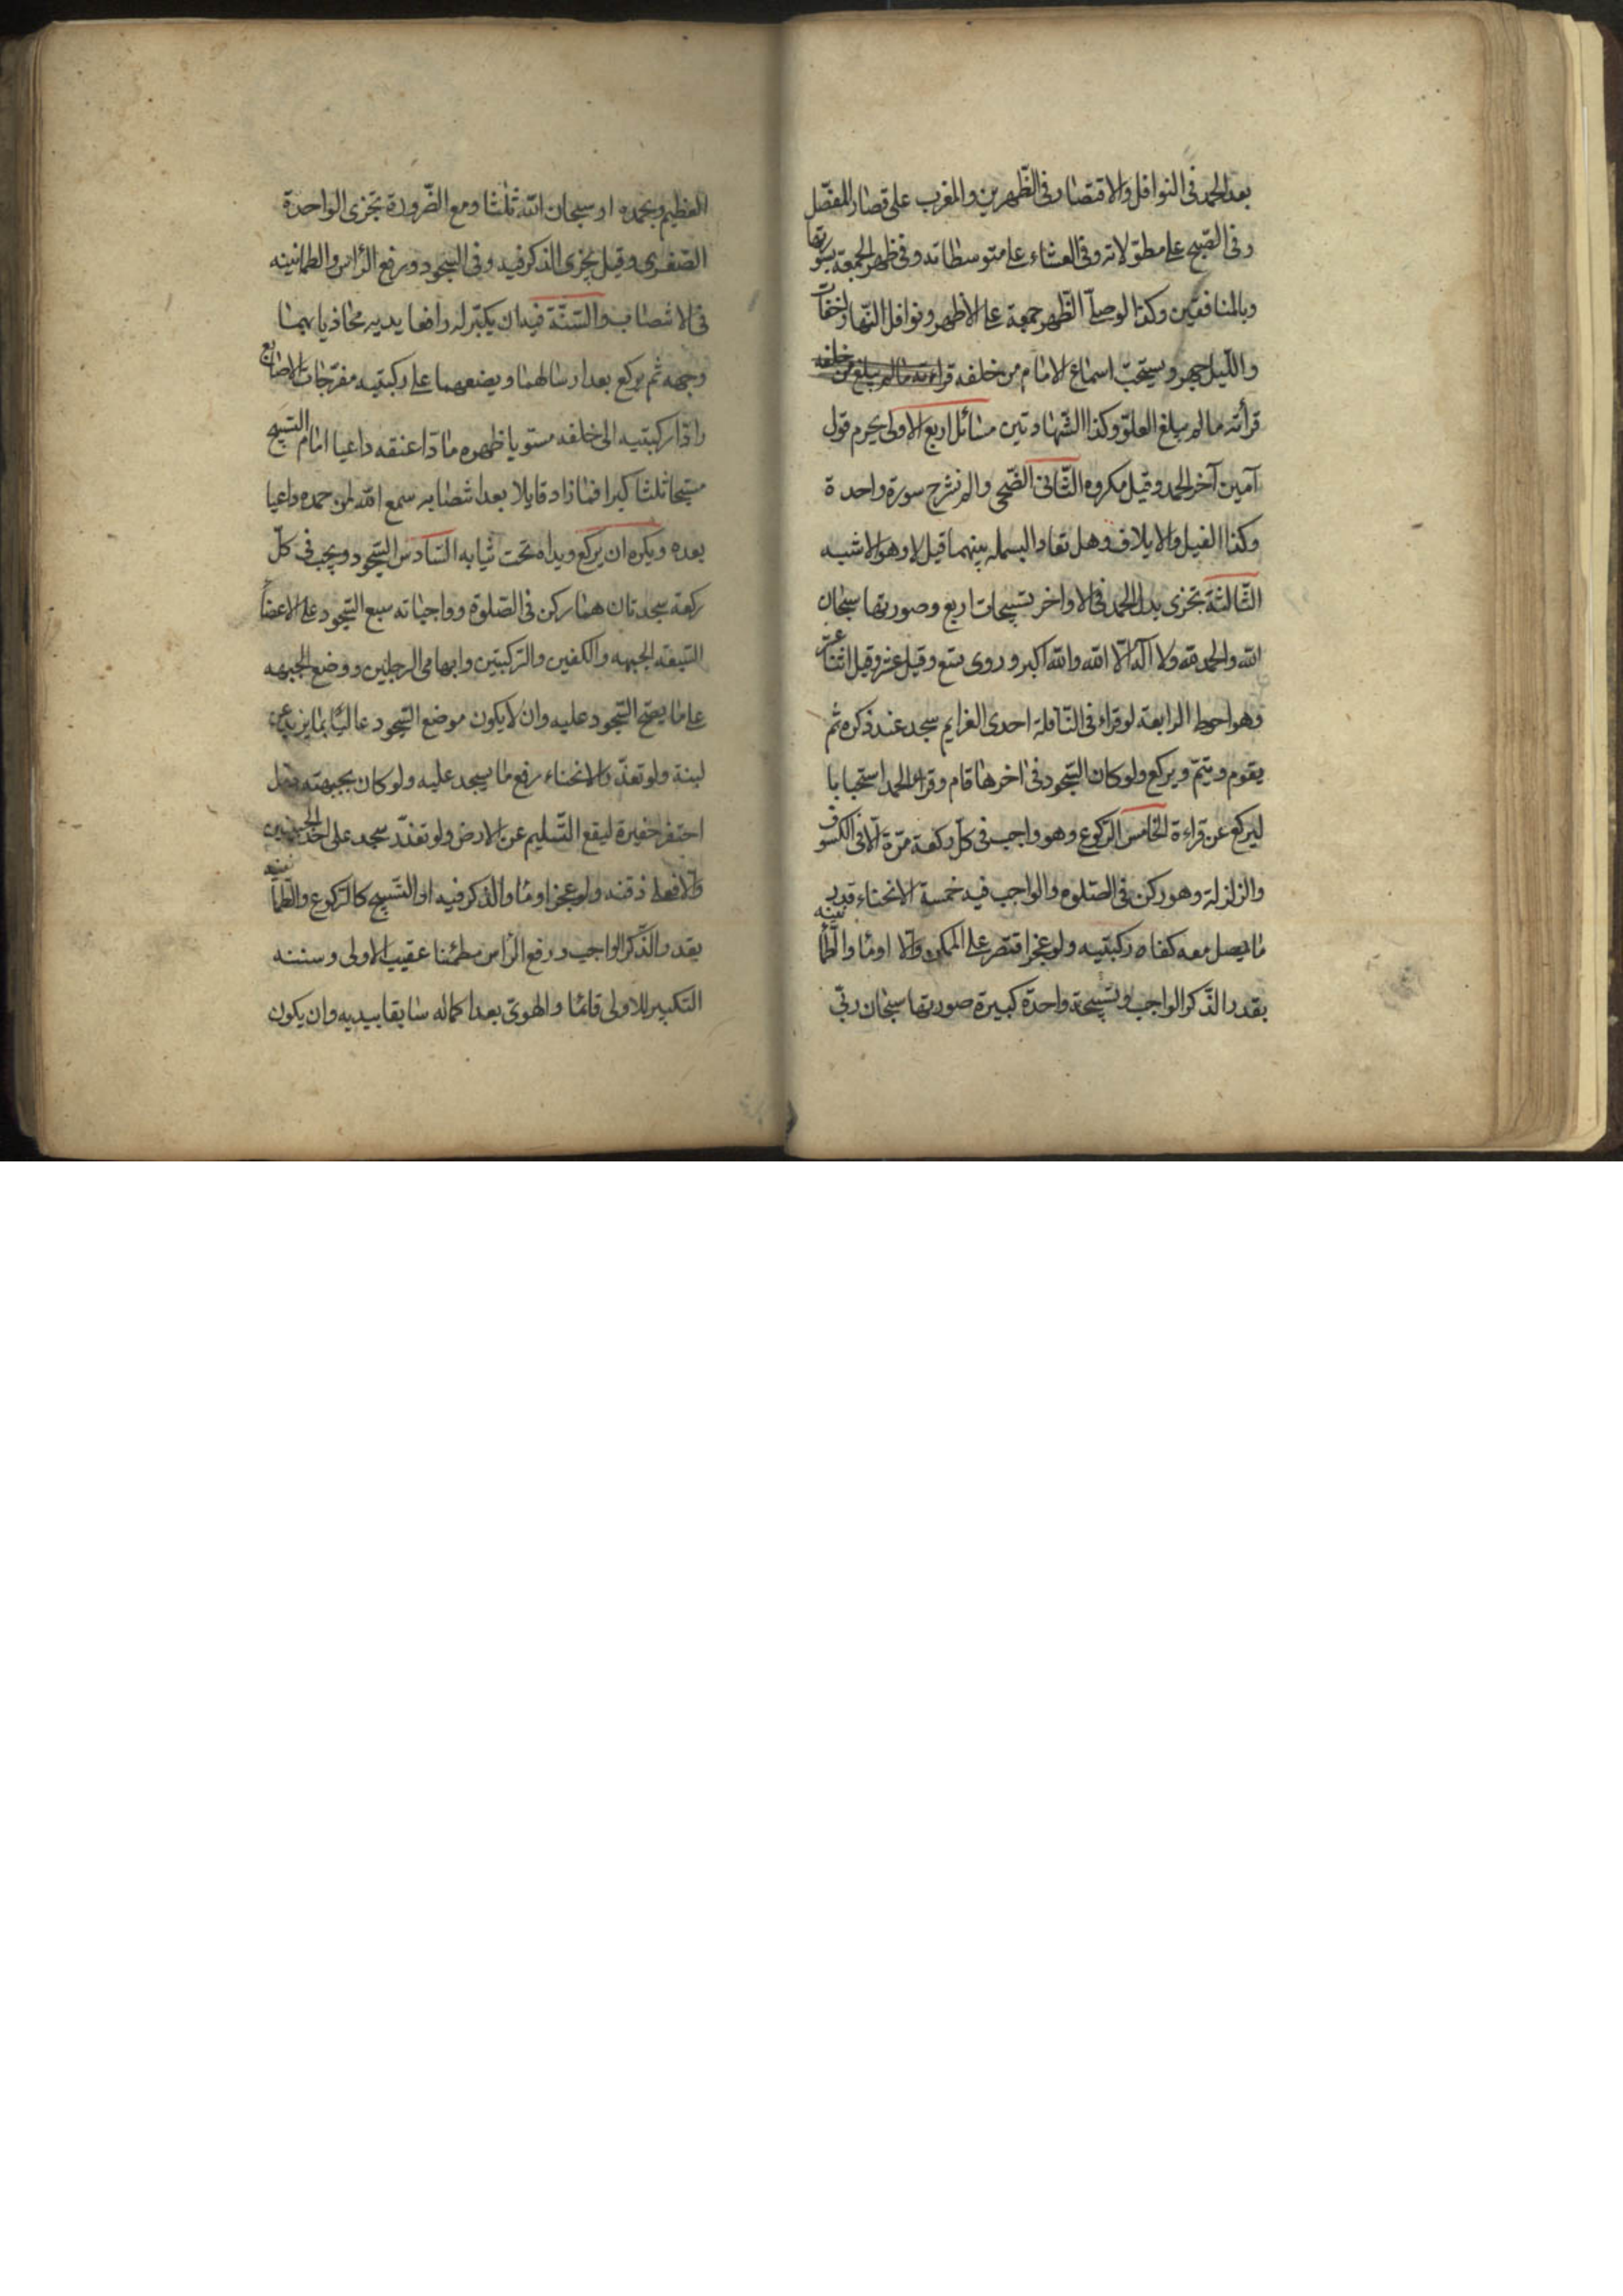 بعد الحمد فى النوافل والاقتصار فى الظّهرين والمغرب على قصار المفصّل
وفى الصّبح على مطوّلاته وفى العشاء على متوسطاته وفى ظهر الجمعة بسورتها
وبالمنافقين وكذا لو صلّى الظّهر جمعة على الأظهر ونوافل النّهار اخفات
واللّيل جهر ويستحبّ اسماع الامام من خلفه قراءته مالم يبلغ من خلفه
قرأته مالم يبلغ العلوّ وكذا الشّهادتين مسائل اربع الاولى يحرم قول
آمين آخر الحمد وقيل مكروه الثّانى الضّحى والم نشرح سورة واحدة
وكذا الفيل والايلاف وهل تعاد البسمله بينهما قيل لا وهو الاشبه
الثّالثة تجزى بدل الحمد فى الاواخر تسبيحات اربع وصورتها سبحان
الله والحمد لله ولا اله الّا الله والله اكبر وروى تسع وقيل عشر وقيل اثنا عشر
وهو احوط الرابعة لو قراء فى النّافلة احدى الغرايم سجد عند ذكره ثم
يقوم ويتمّ ويركع ولو كان السّجود فى اخرها قام وقراء الحمد استحبابا
ليركع عن قراءة الخامس الرّكوع وهو واجب فى كلّ ركعة مرّة الّا فى الكسوف
والزلزلة وهو ركن فى الصّلوه والواجب فيه خمسة الانحناء قدر
ما يصل معه كفاه ركبتيه ولو عجز اقتصر على الممكن والّا اوما والطّمأنينه
بقدر الذّكر الواجب وتسبيحة واحدة كبيرة صورتها سبحان ربّى
العظيم وبحمده او سبحان الله ثلثا ومع الضّرورة تجزى الواحدة
الصّغرى وقيل يجزى الذكر فيه وفى السّجود ورفع الرّاس والطمانينه
فى الانتصاب والسّنّة فيه ان يكبّر له رافعا يديه محاذيا بهما
وجهه ثم يركع بعد ارسالهما ويضعهما على ركبتيه مفرّجات الاصابع
رادّا ركبتيه الى خلفه مستويا ظهره مادّا عنقه داعيا امام التّسبيح
مسبّحا ثلثا كبرا فما زاد قايلا بعد انتصابه سمع الله لمن حمده داعيا
بعده ويكره ان يركع ويداه تحت ثيابه السّادس السّجود ويجب فى كلّ
ركعة سجدتان هما ركن فى الصّلوة وواجباته سبع السّجود على الاعضأ
السّبعه الجبهه والكفين والرّكبتين وابهامى الرجلين ووضع الجبهه
على ما يصحّ السّجود عليه وان لا يكون موضع السّجود عاليًا بما يزيد عن
لبنة ولو تعذّر الانحناء رفع ما يسجد عليه ولو كان بجبهته دمل
احتفر حفيرة ليقع السّليم عن الارض ولو تعذّر سجد على احد الجبينين
والّا فعلى ذقنه ولو عجز اوما والذكر فيه او التّسبيح كالرّكوع والطّمأنينه
بقدر الذّكر الواجب ورفع الرّاس مطمئنا عقيب الاولى وسننه
التكبير للاولى قائما والهوىّ بعد اكماله سابقا بيديه وان يكون